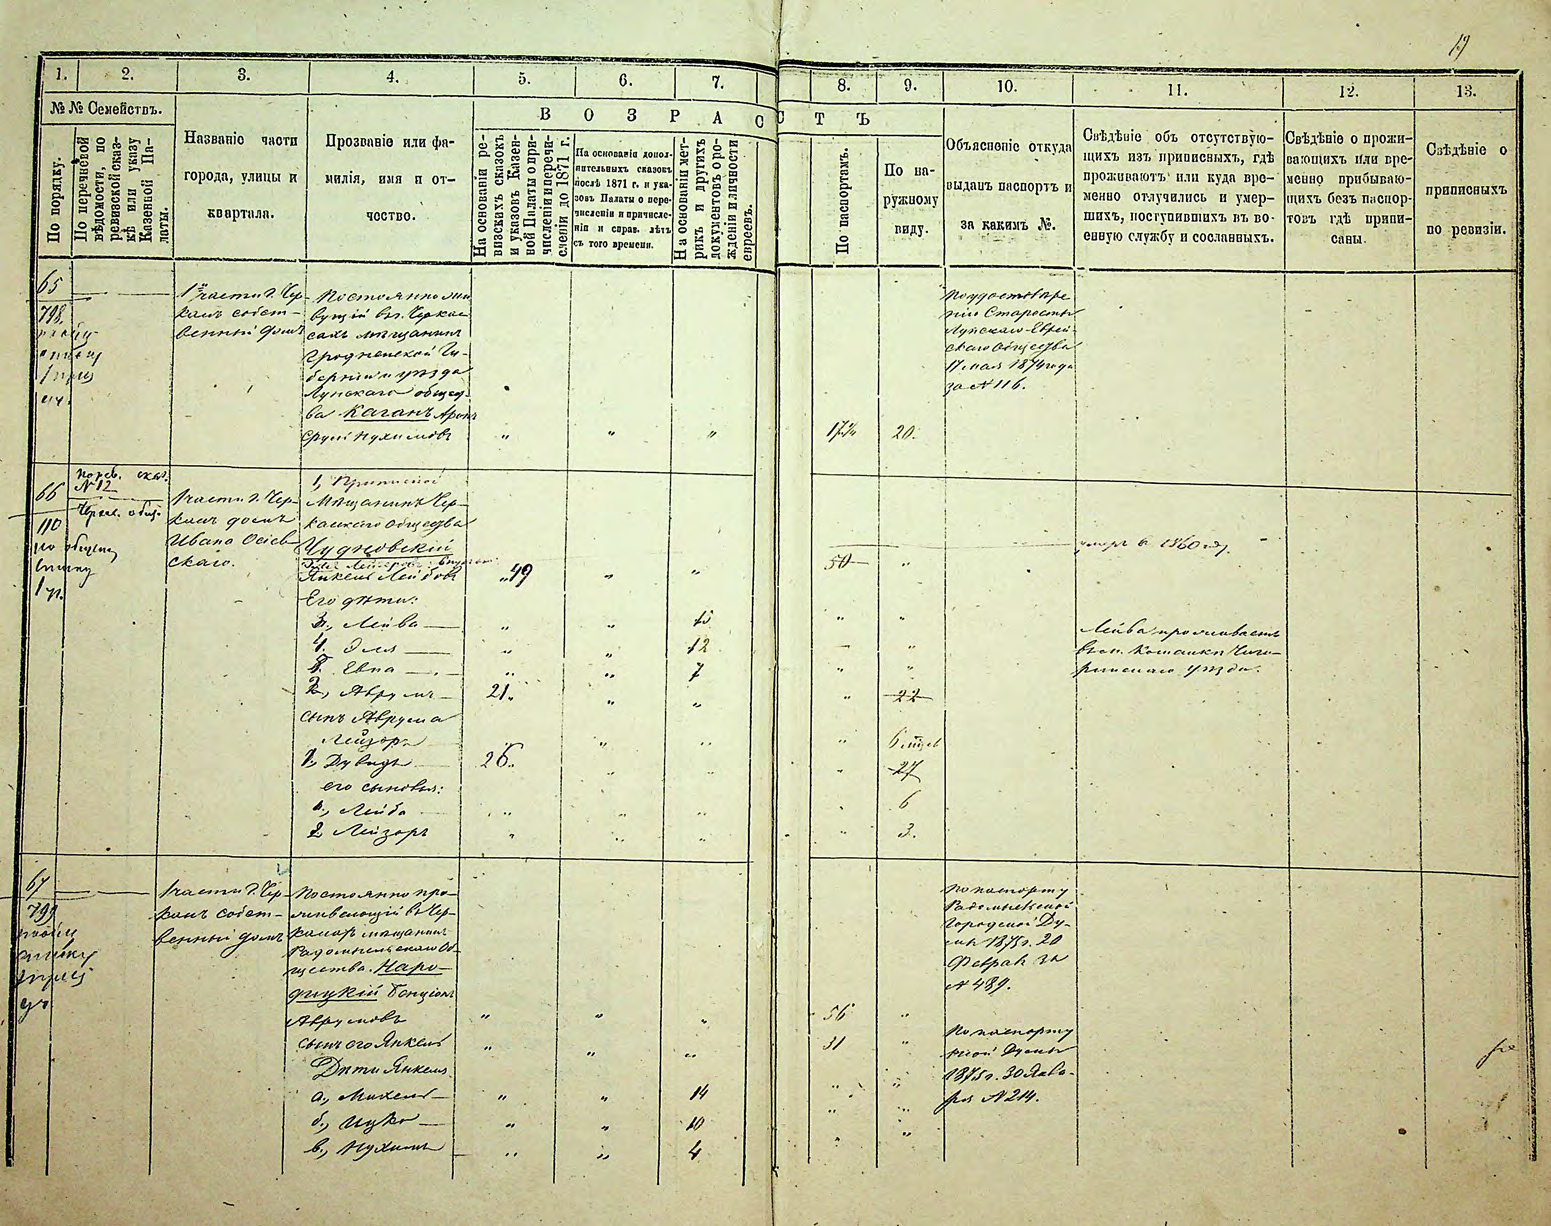 19
1. 2. 3. 4. 5. 6. 7. 8. 9. 10. 11. 12. 13.
№ № Семействъ.
По порядку.
По перечневой
вѣдомости, по
ревизской сказ-
кѣ или указу
Казенной Па-
латы.
Названіе части
города, улицы и
квартала.
Прозваніе или фа-
милія, имя и от-
чество.
ВОЗРАСТЪ
На основаніи ре-
визскихъ сказокъ
и указовъ Казен-
ной Палаты о при-
численіи и перечи-
сленіи до 1871 г.
На основаніи допол-
нительныхъ сказокъ
послѣ 1871 г. и ука-
зовъ Палаты о пере-
численіи и причисле-
ніи и справ. лѣтъ
съ того времени.
На основаніи мет-
рикъ и другихъ
документовъ о ро-
жденіи и личности
евреевъ.
По паспортамъ.
По на-
ружному
виду.
Объясненіе откуда
выданъ паспортъ и
за какимъ №.
Свѣдѣніе объ отсутствую-
щихъ изъ приписныхъ, гдѣ
проживаютъ или куда вре-
менно отлучились и умер-
шихъ, поступившихъ въ во-
енную службу и сосланныхъ.
Свѣдѣніе о прожи-
вающихъ или вре-
менно прибываю-
щихъ безъ паспор-
товъ гдѣ припи-
саны.
Свѣдѣніе о
приписныхъ
по ревизіи.
65
798.
1й части г. Чер-
касъ собст-
венный домъ
Постоянно жи-
вущій въ г. Черкас-
сахъ мѣщанинъ
Гродненской Гу-
берніи и уѣзда
Лунскаго общес-
ва Каганъ Арон
Сруль Нухимовъ
" " " 17¾ 20.
По удостовѣре-
нію Старосты
Лунскаго Еврей-
скаго Общества
17 мая 1874 года
за № 116.
66
110
по общему
списку
1 ч.
по рев. сказ.
№ 12
Черкас. общ.
1 части г. Чер-
касъ домъ
Ивана Осіев-
скаго.
1, Приписной
Мѣщанинъ Чер-
каскаго Общества
Чудновскій
Янкель Лейбовъ
" 49 " " 50 "
умеръ въ 1860 году.
Его дѣти:
3., Лейба " " 15 " "
4. Эля " " 12 — "
5. Евна " " 7 " "
Лейба проживаетъ
въ м. Каменки Чиги-
ринскаго уѣзда.
2., Аврумъ 21. " " " 22
сынъ Аврума
Лейзоръ " " " " 6 мѣсев
1., Дувидъ 26. " " " 27
его сыновья:
1., Лейба " " " " 6
2. Лейзоръ " " " " 3.
67
799
1 части г. Чер-
касъ собст-
венный домъ
Постоянно про-
живающій въ Чер-
касахъ мѣщанинъ
Радомысльскаго Об-
щества. Наро-
дицкій Бенціонъ
Аврумовъ
" " " 56 "
По паспорту
Радомысльской
Городской Ду-
мы 1875 г. 20
Февраля за
№ 489.
сынъ его Янкель " " " 31 "
По паспорту
той Думы
1875 г. 30 Янва-
ря № 214.
Дѣти Янкеля
а., Михель " " 14 " "
б., Ицко " " 10 " "
в., Нухимъ " " 4 " "